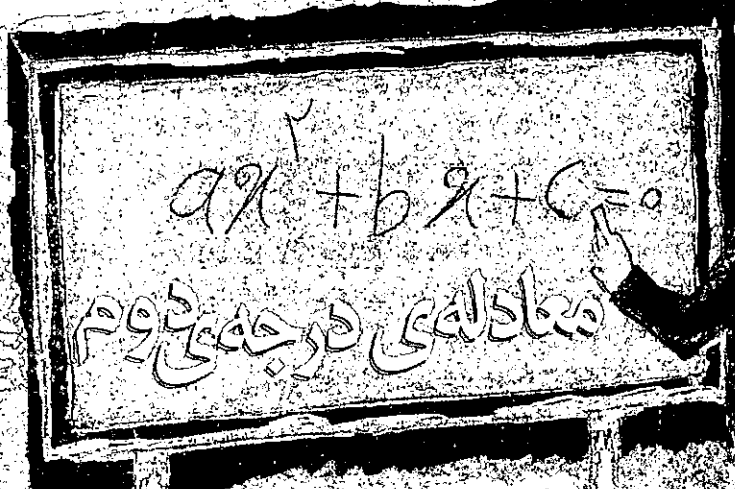 ax²+bx+c=0
معادله‌ی درجه‌ی دوم